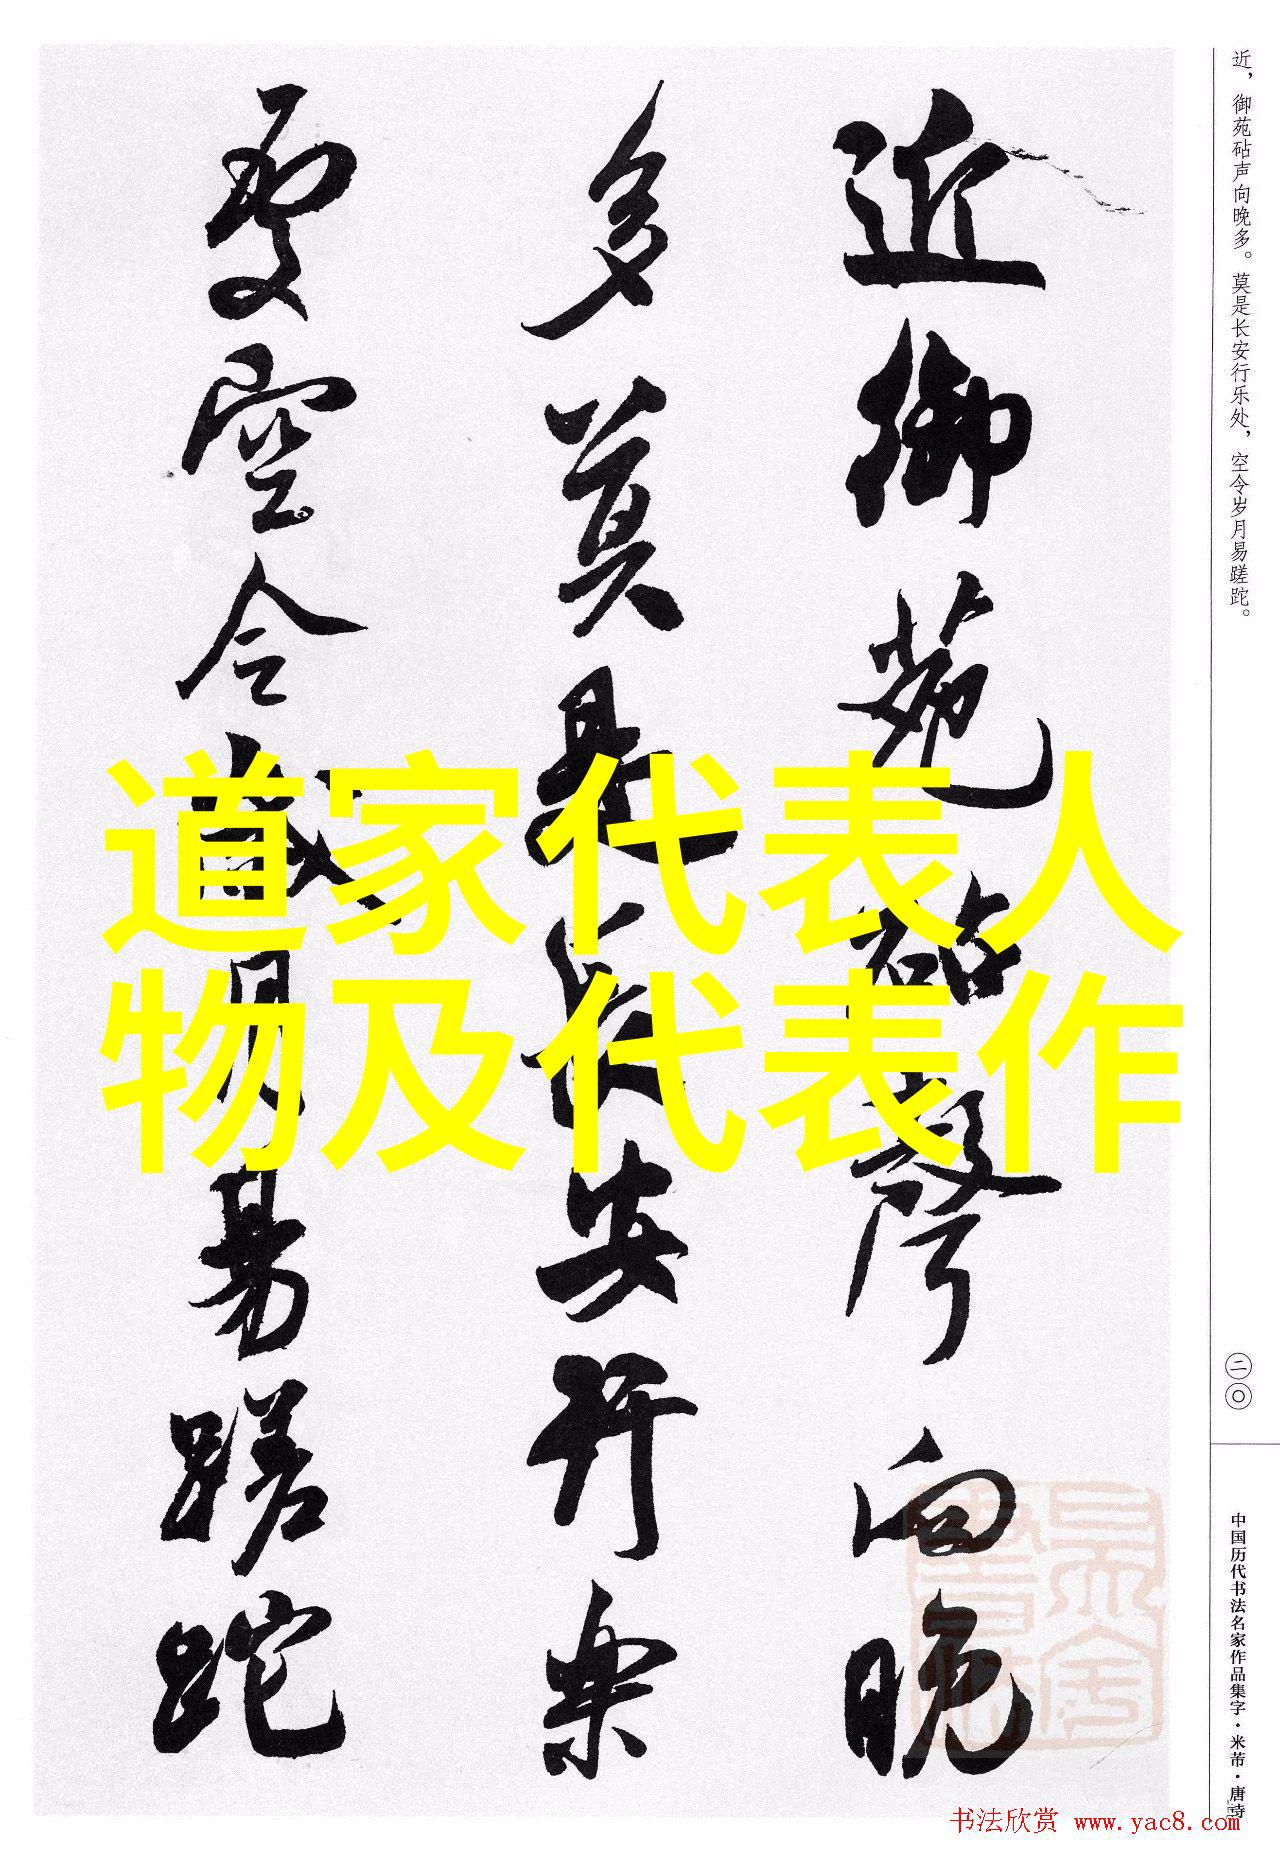 近御苑砧聲向晚
多莫是長安行樂
處空令歲月易蹉跎
近，御苑砧声向晚多。莫是长安行乐处，空令岁月易蹉跎。
二〇
中国历代书法名家作品集字·米芾·唐诗
道家代表人
物及代表作
书法欣赏 www.yac8.com